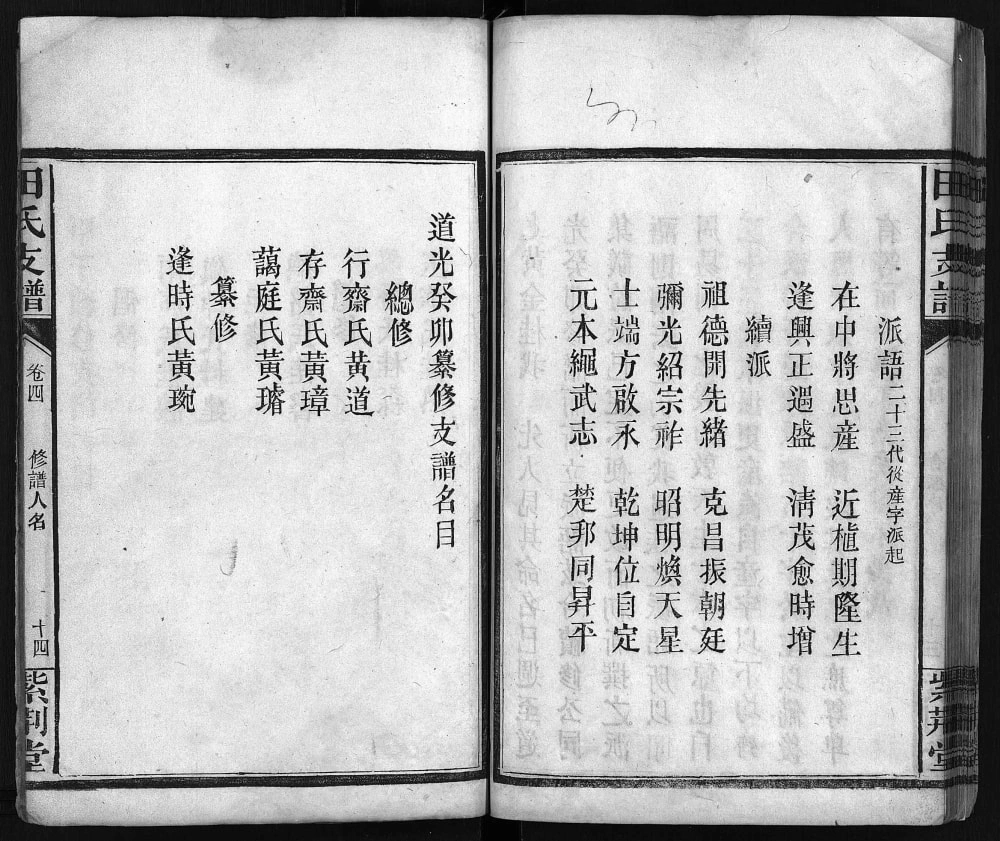 派語二十三代從產字派起
在中將思產　近植期隆生
逢興正遇盛　淸茂愈時增
續派
祖德開先緒　克昌振朝廷
彌光紹宗祚　昭明煥天星
士端方啟承　乾坤位自定
元本繩武志　楚邦同昇平
道光癸卯纂修支譜名目
總修
行齋氏黃道
存齋氏黃璋
藹庭氏黃璿
纂修
逢時氏黃琬
田氏支譜
卷四
修譜人名
十四
紫荆堂